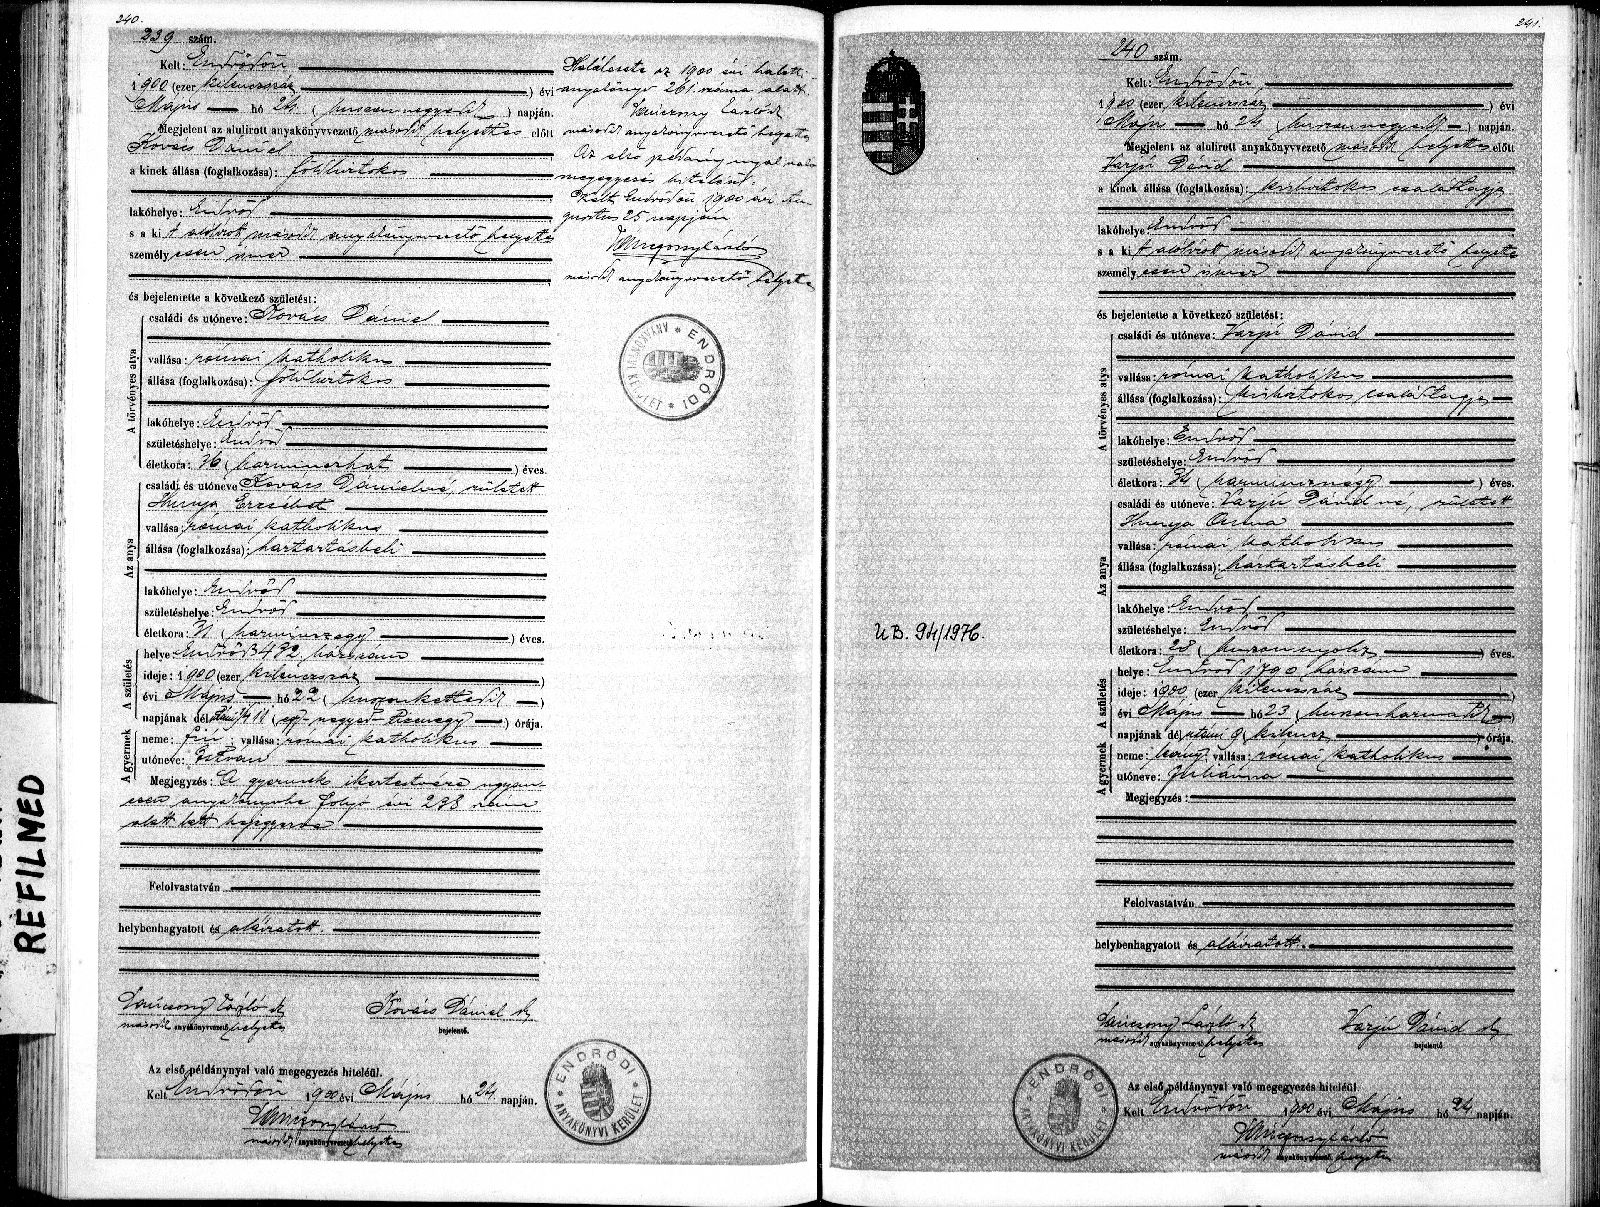 240.
239 szám.
Kelt: Endrődön
1900 (ezer kilencszáz ) évi
Május hó 24 (huszonnegyedik ) napján.
Megjelent az alulirott anyakönyvvezető másodk helyettes előtt
Kovács Dániel
a kinek állása (foglalkozása): földbirtokos
lakóhelye: Endrőd
s a ki t alólirott másodk anyakönyvvezető helyettes
személyesen ismer
és bejelentette a következő születést:
A törvényes atya
családi és utóneve: Kovács Dániel
vallása: római katholikus
állása (foglalkozása): földbirtokos
lakóhelye: Endrőd
születéshelye: Endrőd
életkora: 36 (harminczhat ) éves.
Az anya
családi és utóneve Kovács Dánielné, született
Hunya Erzsébet
vallása: római katholikus
állása (foglalkozása): háztartásbeli
lakóhelye: Endrőd
születéshelye: Endrőd
életkora: 31 (harminczegy ) éves.
A születés
helye: Endrőd 3492 házszám
ideje: 1900 (ezer kilencszáz )
évi Május hó 22 (huszonkettedik )
napjának dél ¾ 11 ( negyed ) órája.
A gyermek
neme: fiú; vallása: római katholikus
utóneve: István
Megjegyzés: A gyermek ikertestvére ugyan-
ezen anyakönyvbe folyó évi 238 szám
alatt lett bejegyezve
Felolvastatván
helybenhagyatott és aláiratott.
Lancsony László sk
másodk anyakönyvvezető helyettes
Kovács Dániel sk
bejelentő.
Az első példánynyal való megegyezés hiteléül.
Kelt Endrődön 1900 évi Május hó 24. napján.
másodk anyakönyvvezető helyettes
ENDRŐDI
ANYAKÖNYVI KERÜLET
Halálesete az 1900 évi halotti
anyakönyv 261 száma alatt.
László sk
másodk anyakönyvvezető helyettes
Az első példánynyal való
megegyezés hiteléül.
Kelt Endrődön 1900 évi Au-
gusztus 25 napján
másodk anyakönyvvezető helyettes
ENDRŐDI
ANYAKÖNYVI KERÜLET
241.
240 szám.
Kelt: Endrődön
1900 (ezer kilencszáz ) évi
Május hó 24 (huszonnegyedik ) napján.
Megjelent az alulirott anyakönyvvezető másodk helyettes előtt
Varjú Dávid
a kinek állása (foglalkozása): kisbirtokos családtagja
lakóhelye: Endrőd
s a ki t alólirott másodk anyakönyvvezető helyettes
személyesen ismer
és bejelentette a következő születést:
A törvényes atya
családi és utóneve: Varjú Dávid
vallása: római katholikus
állása (foglalkozása): kisbirtokos családtagja
lakóhelye: Endrőd
születéshelye: Endrőd
életkora: 34 (harmincznégy ) éves.
Az anya
családi és utóneve: Varjú Dávid né, született
Hunya
vallása: római katholikus
állása (foglalkozása): háztartásbeli
lakóhelye: Endrőd
születéshelye: Endrőd
életkora: 28 (huszonnyolcz ) éves.
A születés
helye: Endrőd 1790 házszám
ideje: 1900 (ezer kilencszáz )
évi Május hó 23 (huszonharmadik )
napjának dél utáni 9 (kilencz ) órája.
A gyermek
neme: leány; vallása: római katholikus
utóneve: Juliánna
Megjegyzés:
Felolvastatván
helybenhagyatott és aláiratott.
Lancsony László sk
másodk anyakönyvvezető helyettes
Varjú Dávid sk
bejelentő
Az első példánynyal való megegyezés hiteléül.
Kelt Endrődön 1900 évi Május hó 24 napján.
másodk anyakönyvvezető helyettes
ENDRŐDI
ANYAKÖNYVI KERÜLET
UB. 94/1976.
REFILMED